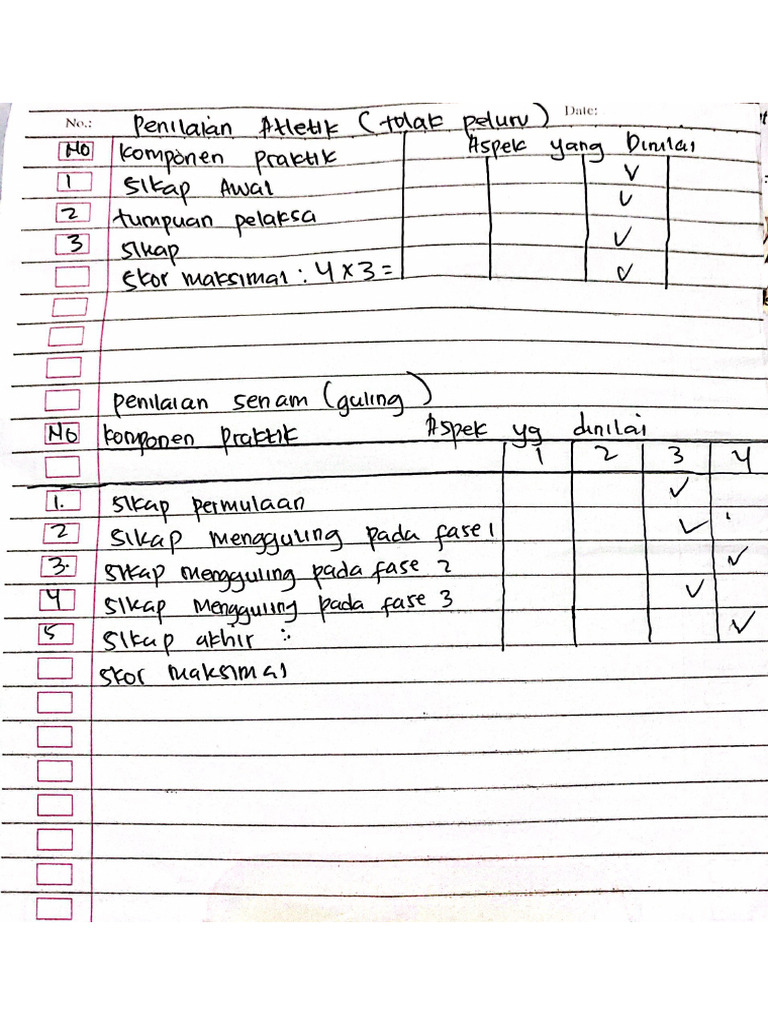 No.: Penilaian Atletik (tolak peluru) Date:
No Komponen praktik Aspek yang Dinilai
1 Sikap Awal ✓
2 tumpuan pelaksa ✓
3 Sikap ✓
Skor maksimal : 4 x 3 = ✓
penilaian senam (guling)
No Komponen praktik Aspek yg dinilai
1 2 3 4
1. Sikap permulaan ✓
2 Sikap mengguling pada fase 1 ✓
3. Sikap mengguling pada fase 2 ✓
4 Sikap Mengguling pada fase 3 ✓
5 Sikap akhir : ✓
Skor maksimal